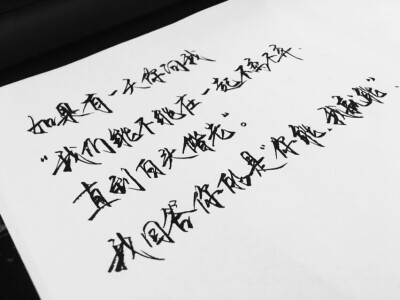 如果有一天你问我
“我们能不能在一起不离不弃
直到白头偕老”。
我回答你的是“你能、我就能”